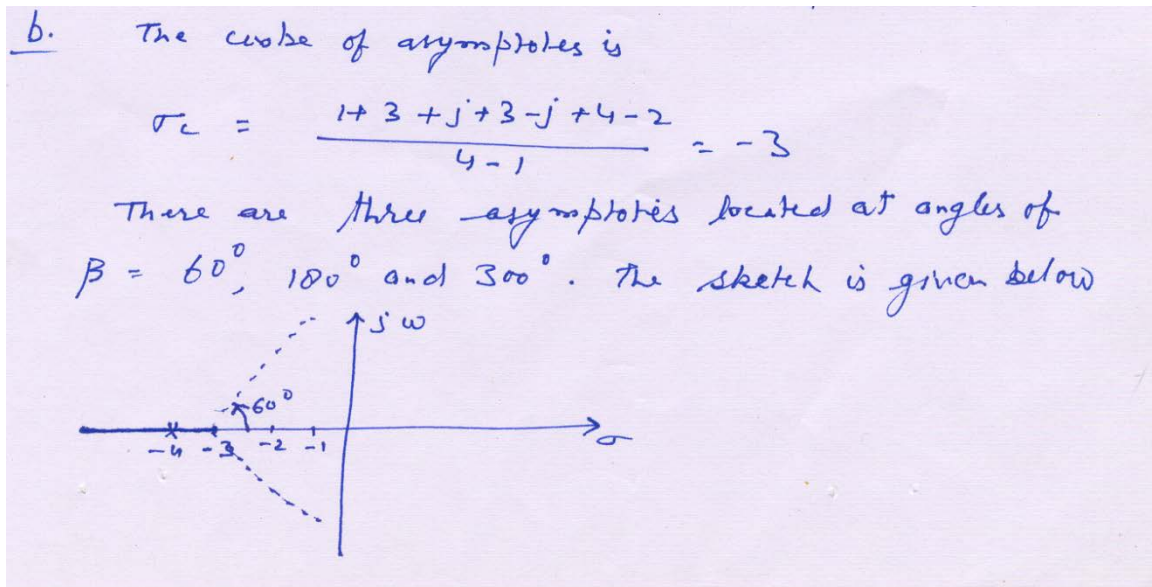 b. The centre of asymptotes is
σc = 1+3+j+3-j+4-2 / 4-1 = -3
There are three asymptotes located at angles of
β = 60°, 180° and 300°. The sketch is given below
jω
60°
-4 -3 -2 -1 σ